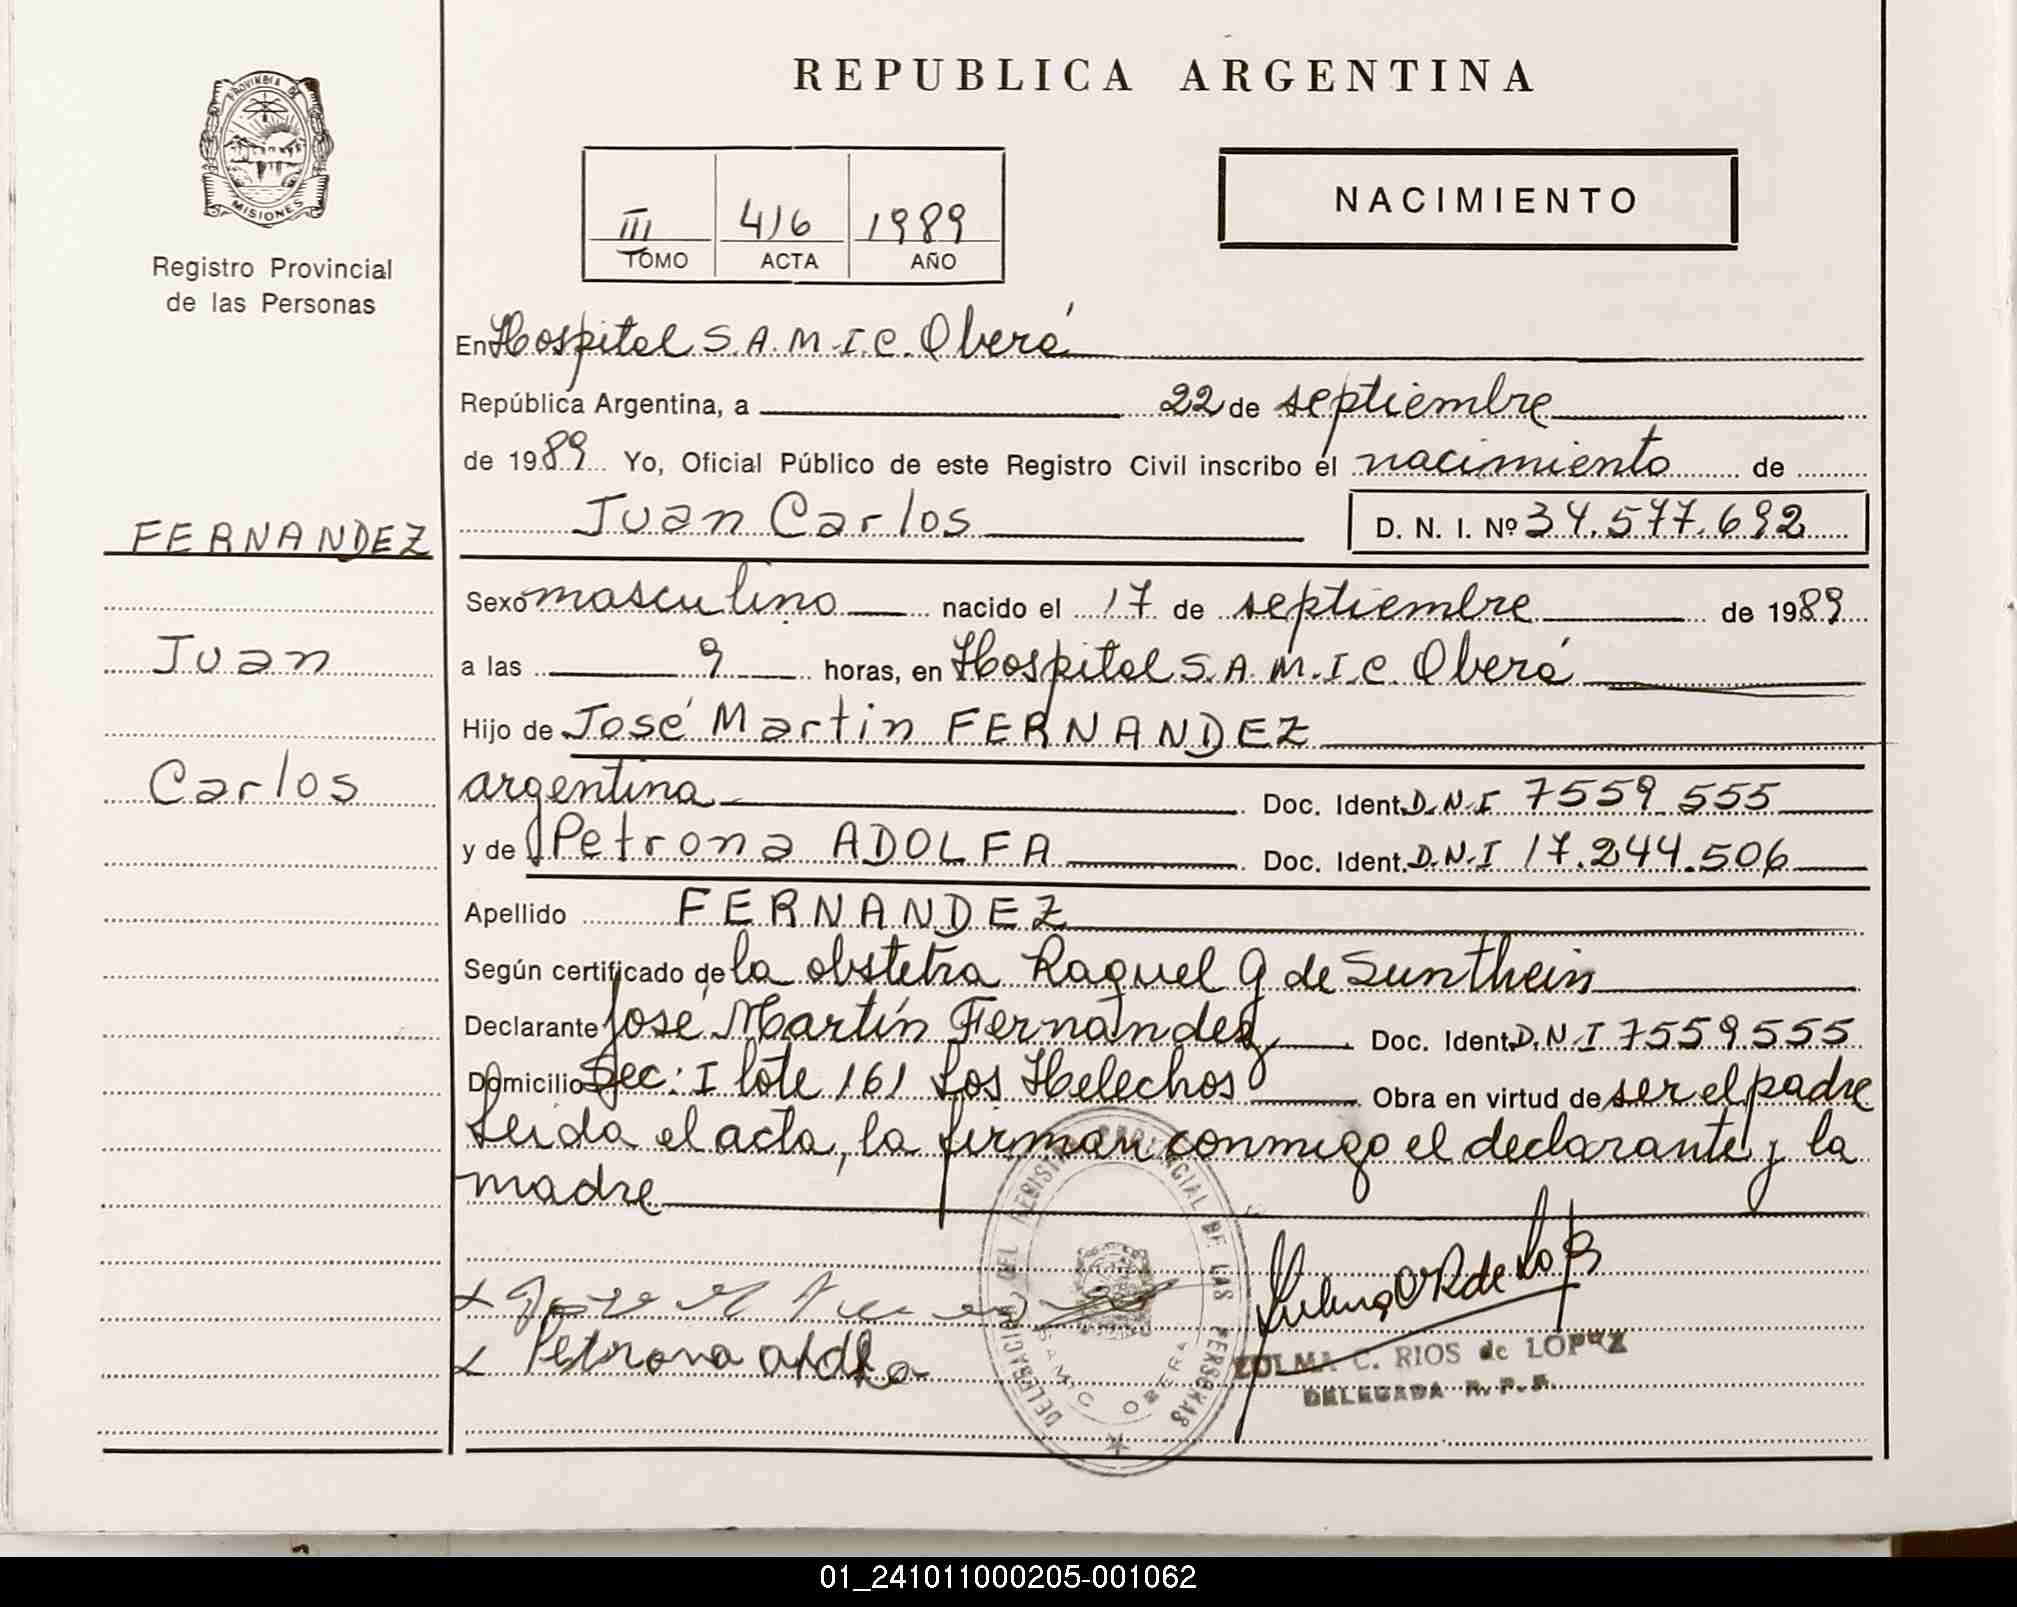 REPUBLICA ARGENTINA
PROVINCIA DE
MISIONES
Registro Provincial
de las Personas
NACIMIENTO
III 416 1989
TOMO ACTA AÑO
En Hospital S.A.M.I.C. Oberá
República Argentina, a 22 de septiembre
de 1989 Yo, Oficial Público de este Registro Civil inscribo el nacimiento de
Juan Carlos D. N. I. Nº 34.577.692
FERNANDEZ
Juan
Carlos
Sexo masculino nacido el 17 de septiembre de 1989
a las 9 horas, en Hospital S.A.M.I.C. Oberá
Hijo de José Martin FERNANDEZ
argentina Doc. Ident. D.N.I 7559 555
y de Petrona ADOLFA Doc. Ident. D.N.I 17.244.506
Apellido FERNANDEZ
Según certificado de la obstetra Raquel G de Sunthein
Declarante José Martín Fernández Doc. Ident. D.N.I 7559555
Domicilio Sec: I lote 161 Los Helechos Obra en virtud de ser el padre
Leida el acta, la firman conmigo el declarante y la
madre
DELEGACION DEL REGISTRO PROVINCIAL DE LAS PERSONAS
SAMIC OBERA
Petrona
ZULMA C. RIOS de LOPEZ
DELEGADA R. P. P.
01_241011000205-001062